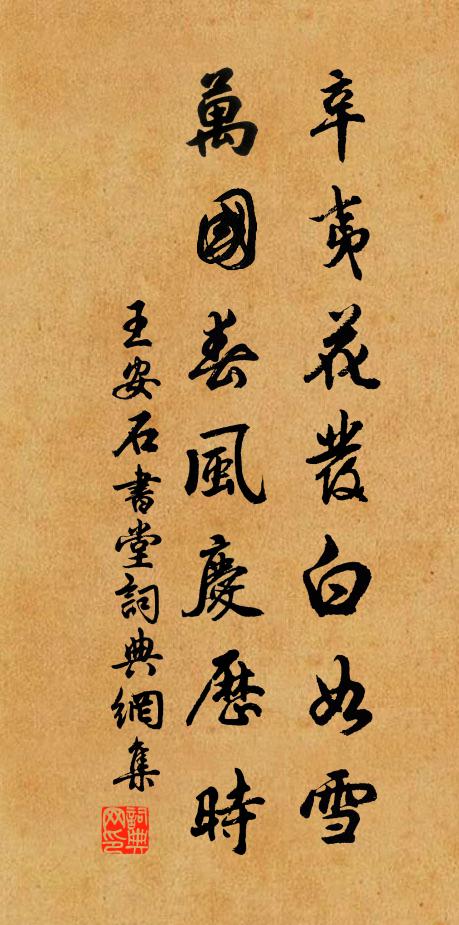 辛夷花發白如雪
萬國春風慶歷時
王安石書堂詞典網集
詞典網印